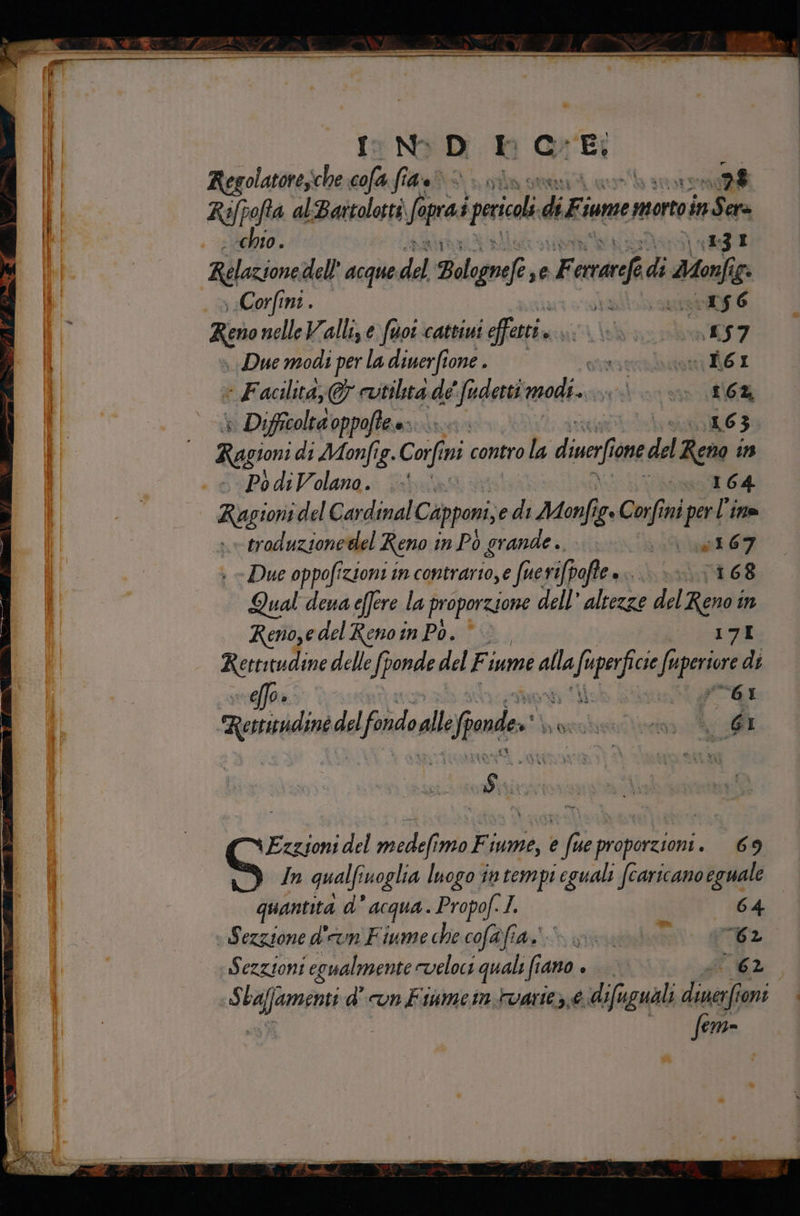 INDICE.
Regolatore, che cosa sia. 98
Risposta al Bartolotti sopra i pericoli di Fiume morto in Ser-
chio. 131
Relazione dell' acque del Bolognese, e Ferrarese di Monsig.
Corsini. 156
Reno nelle Valli, e suoi cattiui effetti. 157
Due modi per la diuersione. 161
Facilità, & vtilità de' sudetti modi. 162
Difficoltà opposte. 163
Ragioni di Monsig. Corsini contro la diuersione del Reno in
Pò di Volano. 164
Ragioni del Cardinal Capponi, e di Monsig. Corsini per l'in-
troduzione del Reno in Pò grande. 167
Due opposizioni in contrario, e sue risposte. 168
Qual deua essere la proporzione dell' altezze del Reno in
Reno, e del Reno in Pò. 171
Rettitudine delle sponde del Fiume alla superficie superiore di
esso. 61
Rettitudine del fondo alle sponde. 61
S
SEzzioni del medesimo Fiume, e sue proporzioni. 69
In qualsiuoglia luogo in tempi eguali scaricano eguale
quantità d' acqua. Propos. I. 64
Sezzione d'vn Fiume che cosa sia. 62
Sezzioni egualmente veloci quali siano. 62
Sbassamenti d' vn Fiume in varie, e disuguali diuersioni
sem-